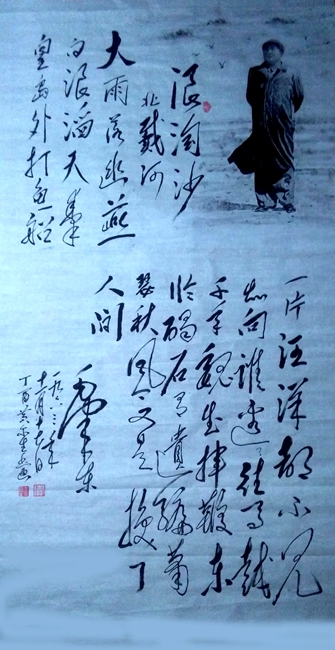 浪淘沙
北戴河
大雨落幽燕
白浪滔天秦
皇岛外打鱼船
一片汪洋都不见
知向谁边往事越
千年魏武挥鞭东
临碣石有遗篇萧
瑟秋风今又是换了
人间
毛泽东
十二月十七日